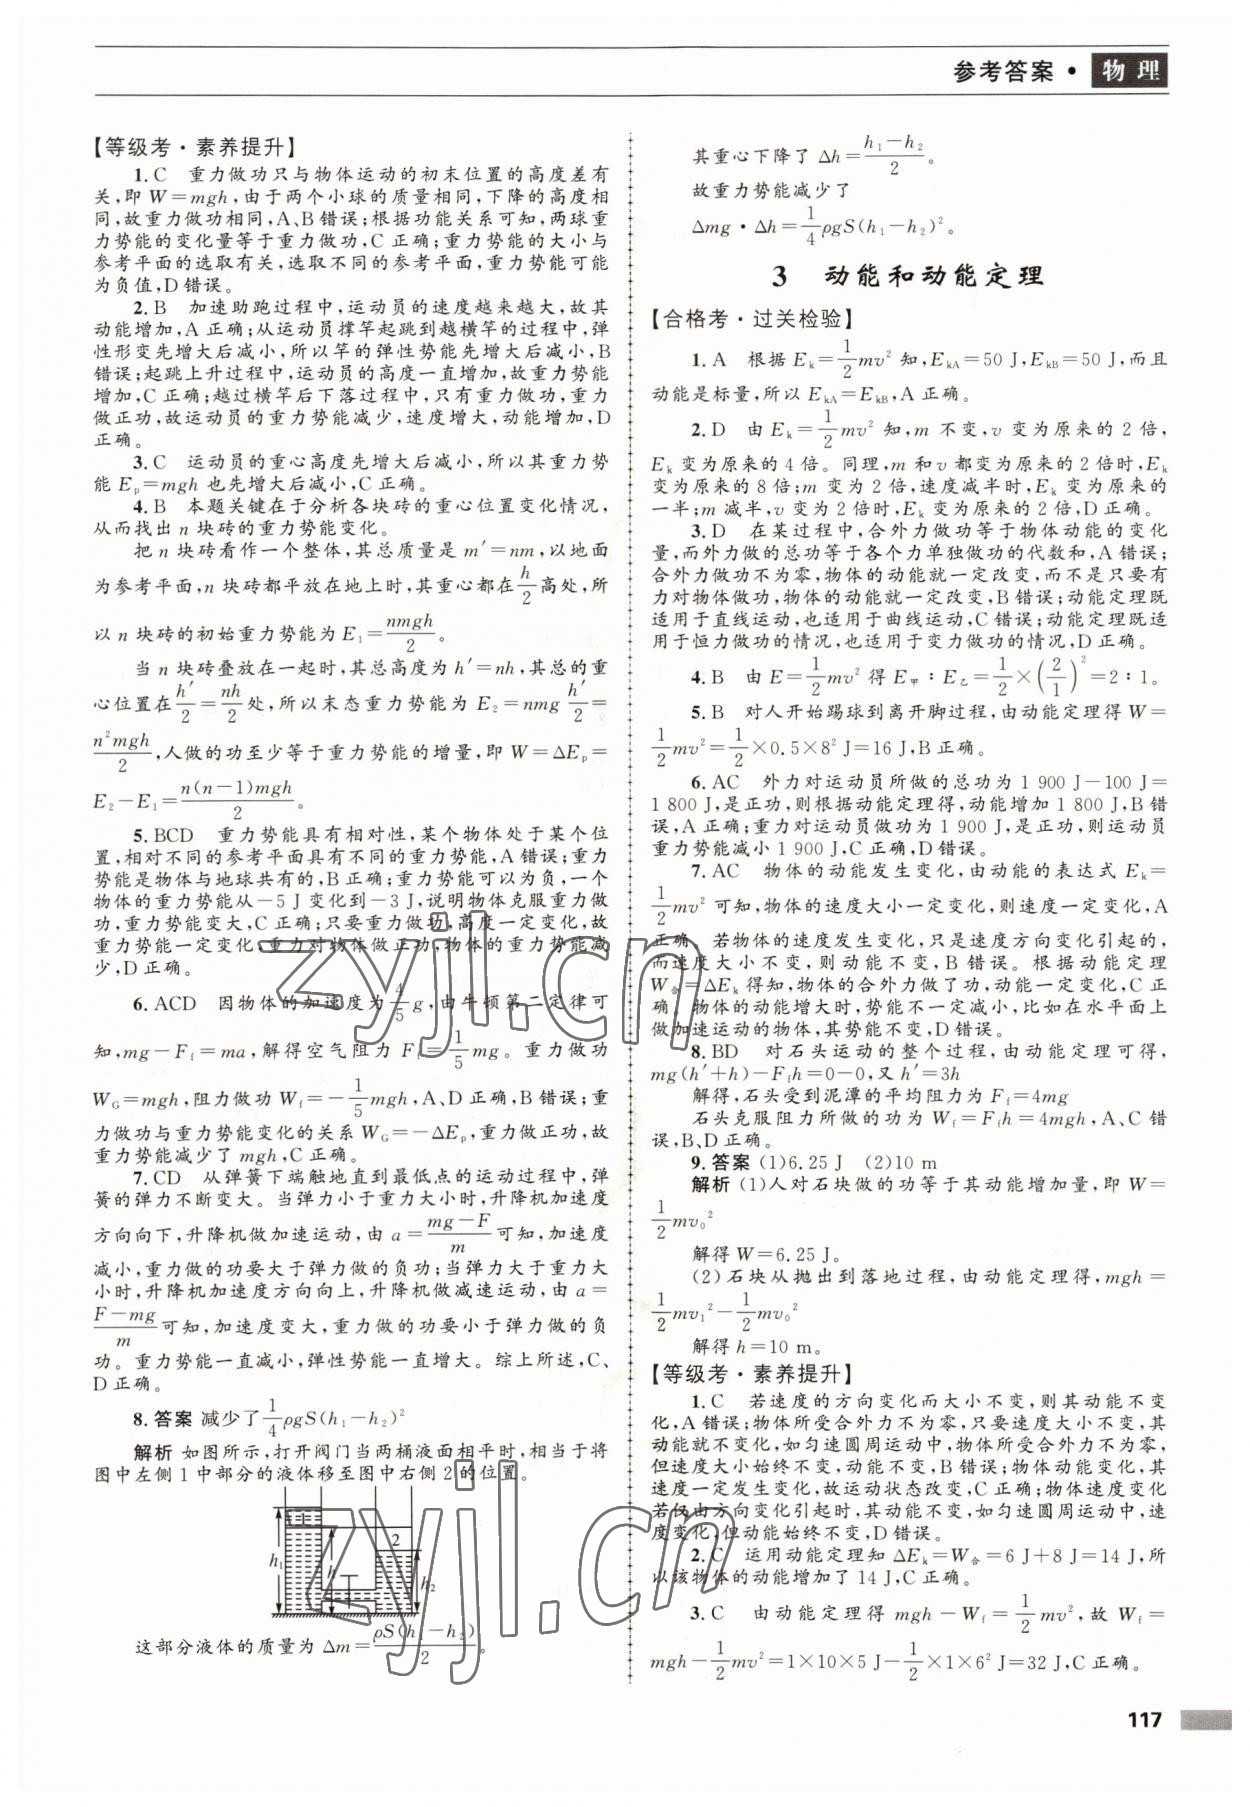 参考答案·物理
【等级考·素养提升】
1.C 重力做功只与物体运动的初末位置的高度差有
关,即 W=mgh,由于两个小球的质量相同,下降的高度相
同,故重力做功相同,A、B错误;根据功能关系可知,两球重
力势能的变化量等于重力做功,C正确;重力势能的大小与
参考平面的选取有关,选取不同的参考平面,重力势能可能
为负值,D错误。
2.B 加速助跑过程中,运动员的速度越来越大,故其
动能增加,A正确;从运动员撑竿起跳到越横竿的过程中,弹
性形变先增大后减小,所以竿的弹性势能先增大后减小,B
错误;起跳上升过程中,运动员的高度一直增加,故重力势能
增加,C正确;越过横竿后下落过程中,只有重力做功,重力
做正功,故运动员的重力势能减少,速度增大,动能增加,D
正确。
3.C 运动员的重心高度先增大后减小,所以其重力势
能 Eₚ=mgh 也先增大后减小,C正确。
4.B 本题关键在于分析各块砖的重心位置变化情况,
从而找出 n 块砖的重力势能变化。
把 n 块砖看作一个整体,其总质量是 m′=nm,以地面
为参考平面,n 块砖都平放在地上时,其重心都在h/2高处,所
以 n 块砖的初始重力势能为 E₁=nmgh/2。
当 n 块砖叠放在一起时,其总高度为 h′=nh,其总的重
心位置在h′/2=nh/2处,所以末态重力势能为 E₂=nmg h′/2=
n²mgh/2,人做的功至少等于重力势能的增量,即 W=ΔEₚ=
E₂-E₁=n(n-1)mgh/2。
5.BCD 重力势能具有相对性,某个物体处于某个位
置,相对不同的参考平面具有不同的重力势能,A错误;重力
势能是物体与地球共有的,B正确;重力势能可以为负,一个
物体的重力势能从-5 J变化到-3 J,说明物体克服重力做
功,重力势能变大,C正确;只要重力做功,高度一定变化,故
重力势能一定变化,重力对物体做正功,物体的重力势能减
少,D正确。
6.ACD 因物体的加速度为4/5g,由牛顿第二定律可
知,mg-F_f=ma,解得空气阻力 F_f=1/5mg。重力做功
W_G=mgh,阻力做功 W_f=-1/5mgh,A、D正确,B错误;重
力做功与重力势能变化的关系 W_G=-ΔEₚ,重力做正功,故
重力势能减少了 mgh,C正确。
7.CD 从弹簧下端触地直到最低点的运动过程中,弹
簧的弹力不断变大。当弹力小于重力大小时,升降机加速度
方向向下,升降机做加速运动,由 a=(mg-F)/m可知,加速度
减小,重力做的功要大于弹力做的负功;当弹力大于重力大
小时,升降机加速度方向向上,升降机做减速运动,由 a=
(F-mg)/m可知,加速度变大,重力做的功要小于弹力做的负
功。重力势能一直减小,弹性势能一直增大。综上所述,C、
D正确。
8.答案 减少了1/4ρgS(h₁-h₂)²
解析 如图所示,打开阀门当两桶液面相平时,相当于将
图中左侧1中部分的液体移至图中右侧2的位置。
1
2
h₁
h
h₂
这部分液体的质量为 Δm=ρS(h₁-h₂)/2。
其重心下降了 Δh=(h₁-h₂)/2。
故重力势能减少了
Δmg·Δh=1/4ρgS(h₁-h₂)²。
3 动能和动能定理
【合格考·过关检验】
1.A 根据 E_k=1/2mv² 知,E_kA=50 J,E_kB=50 J,而且
动能是标量,所以 E_kA=E_kB,A正确。
2.D 由 E_k=1/2mv² 知,m 不变,v 变为原来的 2 倍,
E_k 变为原来的 4 倍。同理,m 和 v 都变为原来的2倍时,E_k
变为原来的 8 倍;m 变为 2 倍,速度减半时,E_k 变为原来的
一半;m 减半,v 变为2倍时,E_k 变为原来的2倍,D正确。
3.D 在某过程中,合外力做功等于物体动能的变化
量,而外力做的总功等于各个力单独做功的代数和,A错误;
合外力做功不为零,物体的动能就一定改变,而不是只要有
力对物体做功,物体的动能就一定改变,B错误;动能定理既
适用于直线运动,也适用于曲线运动,C错误;动能定理既适
用于恒力做功的情况,也适用于变力做功的情况,D正确。
4.B 由 E=1/2mv² 得 E甲∶E乙=1/2×(2/1)²=2∶1。
5.B 对人开始踢球到离开脚过程,由动能定理得 W=
1/2mv²=1/2×0.5×8² J=16 J,B正确。
6.AC 外力对运动员所做的总功为 1 900 J-100 J=
1 800 J,是正功,则根据动能定理得,动能增加 1 800 J,B错
误,A正确;重力对运动员做功为 1 900 J,是正功,则运动员
重力势能减小 1 900 J,C正确,D错误。
7.AC 物体的动能发生变化,由动能的表达式 E_k=
1/2mv² 可知,物体的速度大小一定变化,则速度一定变化,A
正确 若物体的速度发生变化,只是速度方向变化引起的,
而速度大小不变,则动能不变,B错误。根据动能定理
W合=ΔE_k 得知,物体的合外力做了功,动能一定变化,C正
确 物体的动能增大时,势能不一定减小,比如在水平面上
做加速运动的物体,其势能不变,D错误。
8.BD 对石头运动的整个过程,由动能定理可得,
mg(h′+h)-F_fh=0-0,又 h′=3h
解得,石头受到泥潭的平均阻力为 F_f=4mg
石头克服阻力所做的功为 W_f=F_fh=4mgh,A、C错
误,B、D正确。
9.答案 (1)6.25 J (2)10 m
解析 (1)人对石块做的功等于其动能增加量,即 W=
1/2mv₀²
解得 W=6.25 J。
(2)石块从抛出到落地过程,由动能定理得,mgh=
1/2mv₁²-1/2mv₀²
解得 h=10 m。
【等级考·素养提升】
1.C 若速度的方向变化而大小不变,则其动能不变
化,A错误;物体所受合外力不为零,只要速度大小不变,其
动能就不变化,如匀速圆周运动中,物体所受合外力不为零,
但速度大小始终不变,动能不变,B错误;物体动能变化,其
速度一定发生变化,故运动状态改变,C正确;物体速度变化
若仅由方向变化引起时,其动能不变,如匀速圆周运动中,速
度变化,但动能始终不变,D错误。
2.C 运用动能定理知 ΔE_k=W合=6 J+8 J=14 J,所
以该物体的动能增加了 14 J,C正确。
3.C 由动能定理得 mgh-W_f=1/2mv²,故 W_f=
mgh-1/2mv²=1×10×5 J-1/2×1×6² J=32 J,C正确。
117
zyjl.cn
zyjl.cn